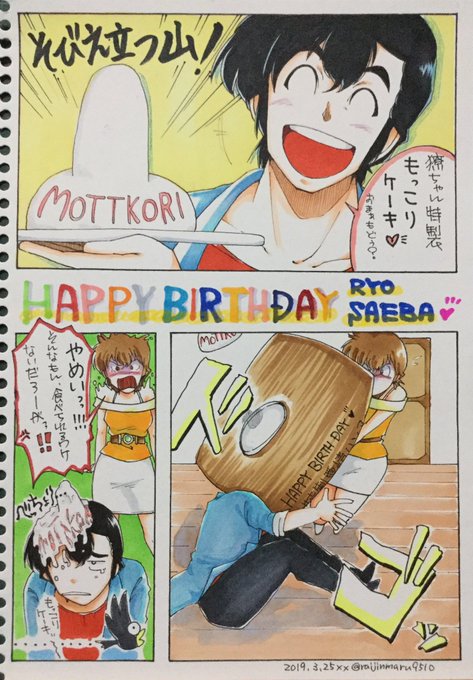 そびえ立つ山!
MOTTKORI
獠ちゃん特製
もっこり
ケーキ♥
おまえもどう?
HAPPY BIRTHDAY RYO
SAEBA♥
やめい〜っ!!!
そんなもん、食べられるワケ
ないだろーがっ!!
MOTTKORI
HAPPY BIRTHDAY♥
べちょり
MOTTKORI
もっこり
ケーキ
2019.3.25xx @raijinmaru9510